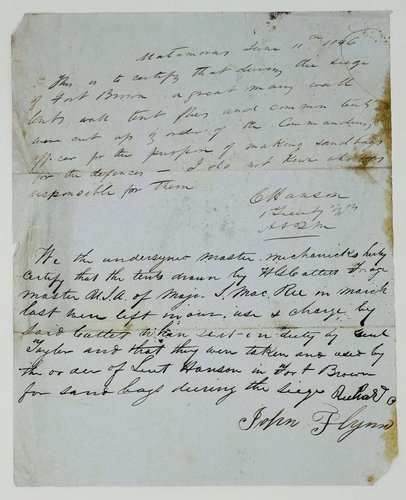 Matamoros June 11th 1846
This is to certify that during the siege
of Fort Brown a great many wall
tents wall tent flies and common tents
were cut up by order of the Commanding
officer for the purpose of making sand bags
for the defences — I do not know who was
responsible for them
C Hanson
1st Lieut 7th
A A Q M
We the undersigned master mechanicks
certify that the tents drawn by H S Forage
master U.S.A. of Major S. Mac Ree in march
last were left in our use & charge by
said when sent on duty by Genl
Taylor and that they were taken and used by
the order of Lieut Hanson in Fort Brown
for sand bags during the siege Richard
John Flynn